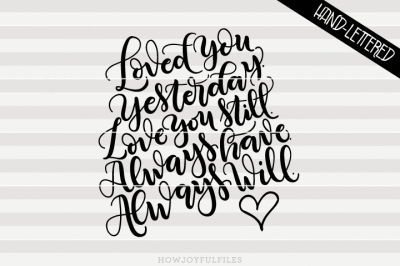 HAND-LETTERED
Loved you
yesterday
Love you still
Always have
Always Will
HOWJOYFULFILES